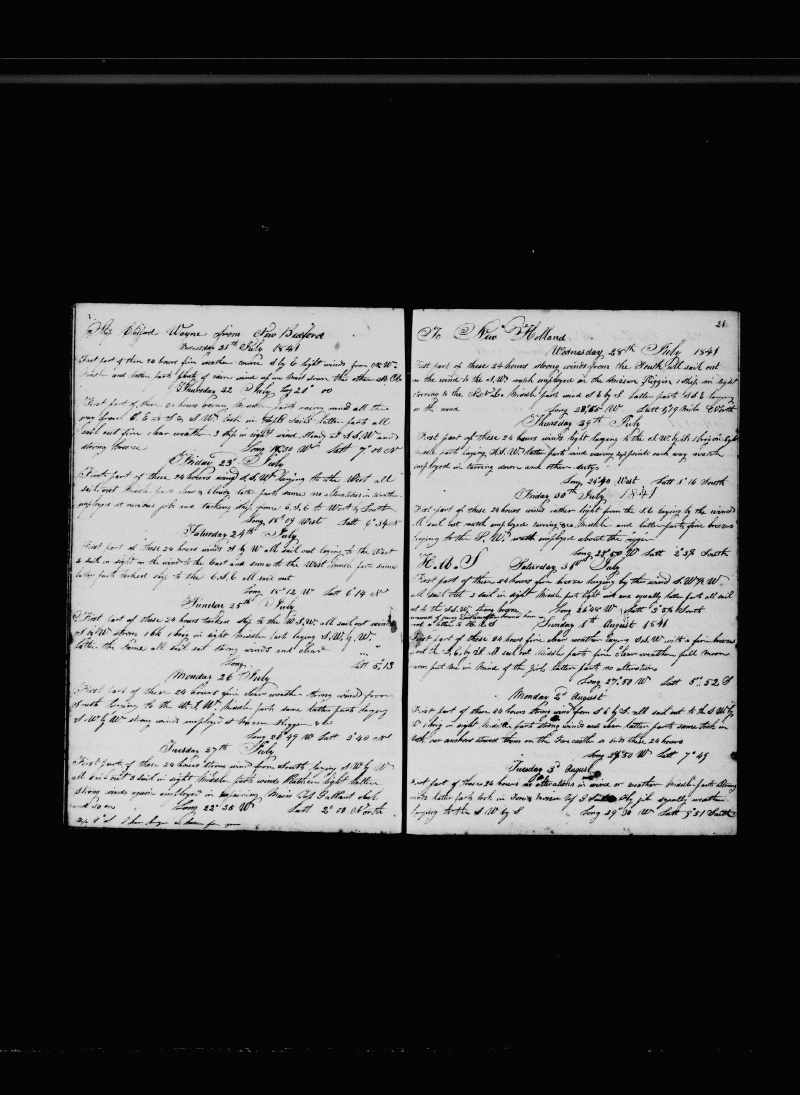 Ship Clifford Wayne from New Bedford
Wednesday 21th July 1841
First part of these 24 hours fine weather course S by E light winds from
and latter part plenty of rain wind up
Thursday 22 July Long 20° 00
First part of these 24 hours Middle parts wind all the
way from S. E. to S & S W. Took in Latter parts all
sail out fine clear weather 2 ship in sight wind Steady at S.S.W and
strong breese Long 00 W Latt 7° 00 N
Friday 23d July
First part of these 24 hours wind S.S.W. laying to the West all
sail out Middle parts latter parts same no alterations in weather
employed at various jobs and tacking ship from E.S.E to West by South
Long 18° 09 West Latt 6° 54 N
Saturday 24th July
First part of these 24 hours winds S by W all sail out laying to the West
2 sail in sight on the wind to the East and some to the West Middle parts same
latter parts tacked ship to the E.S.E all sail out
Long 18° 12 W Latt 6° 14 N
Sunday 25th July
First part of these 24 hours tacked ship to the W.S.W. all sail out winds
S by W strong 1 brig in sight Middle parts laying S.W. by W.
latter the same all sail out strong winds and clear
Long. Lat 5° 13
Monday 26 July
First part of these 24 hours fine clear weather strong winds from
South laying to the W.S.W. Middle parts same latter parts laying
S.W by W strong winds employed at Mizzen Riggin &c
Long 20° 49 W Latt 3° 40 N
Tuesday 27th July
First part of these 24 hours strong wind from South laying S.W by W
all sail out 2 sail in sight Middle parts winds light latter
strong winds again employed in repairing Main Top Gallant sail
and so on Long 22° 25 W Latt 2° 00 North
21
To New Holland
Wednesday 28th July 1841
First part of these 24 hours strong winds from the South all sail out
on the wind to the S.W. watch employed in the Mizzen Riggin 1 ship in sight
steering to the Middle parts wind S E by S latter parts S.S.E laying
on the wind Long 23°,55 W Latt 0°,9 Miles North
Thursday 29th July
First part of these 24 hours winds light laying to the S.W. by S. 1 brig in sight
Middle parts laying S.S.W. latter parts wind each way watch
employed in tarring down and other dutys
Long 24°40 West Latt 1° 16 South
Friday 30th July 1841
First part of these 24 hours winds rather light from the S.E laying by the wind
all sail out watch employed Middle and latter parts fine breese
laying to the S.W. watch employed about the riggin
Long 25° 50 W Latt 2° 38 South
H.M.S Saturday 31st July
First part of these 24 hours fine breese laying by the wind S W by W.
all sail out 2 sail in sight Middle part light and squally latter parts all sail
out to the S.S.W. strong breese Long 26°44 W Latt 3° 56 South
Sunday 1st August 1841
First part of these 24 hours fine clear weather laying S.S.W with a fine breese
out the S.E. by E. all sail out Middle parts fine clear weather full moon
put me in Mind of the Girls latter parts no alterations
Long 27° 50 W Latt 5° 52 S
Monday 2d August
First part of these 24 hours strong wind from S E by S. all sail out to the S W by
W 1 brig in sight Middle parts strong winds and clear latter parts same took in
both our anchors stowed them on the Forecastle so ends these 24 hours
Long 28°50 W Latt 7° 49
Tuesday 3d August
First part of these 24 hours no alterations in wind or weather Middle parts Strong
winds latter parts took in jib squally weather
laying to the S W by S Long 29° 30 W Latt 9° 51 South